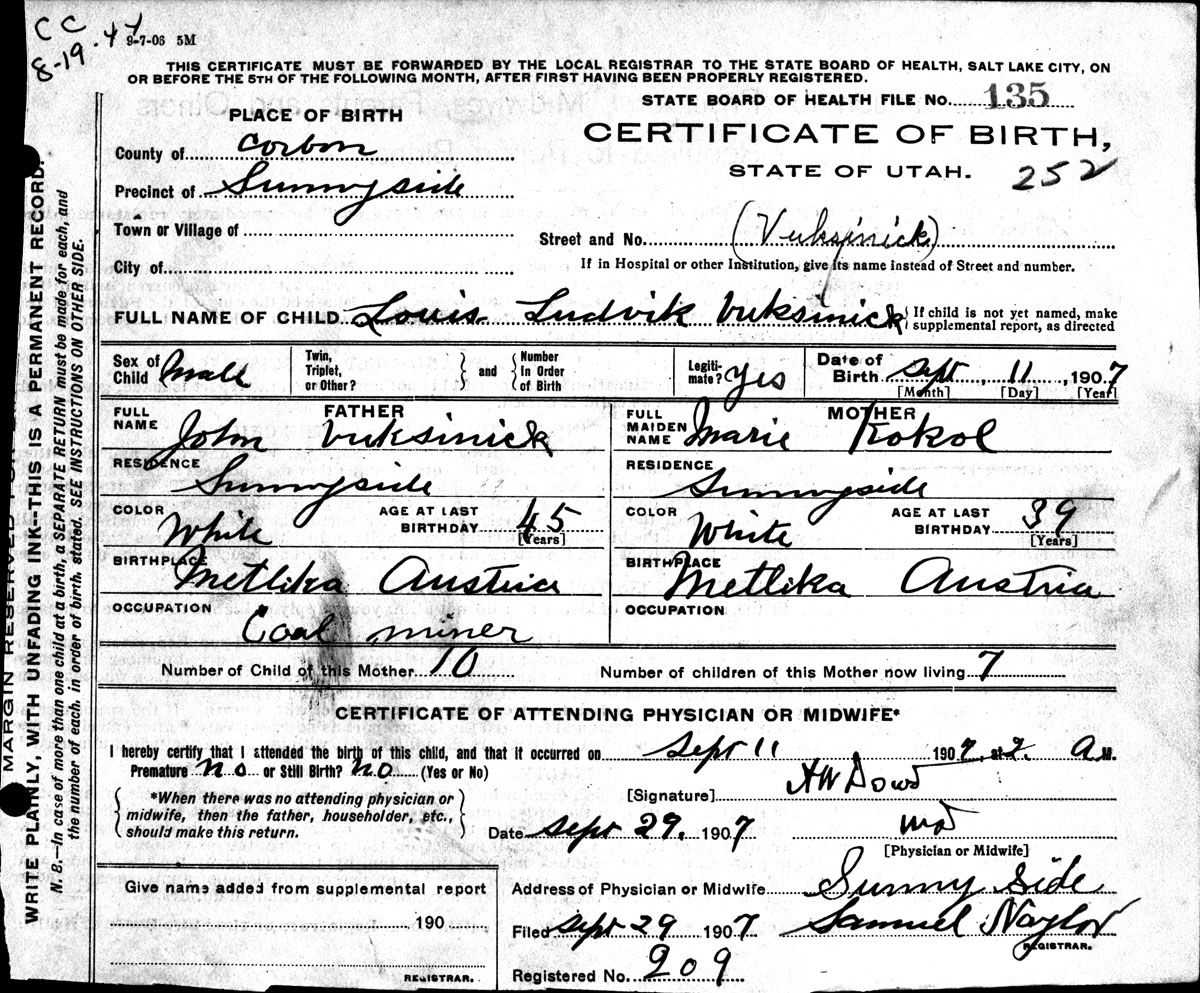 CC
8-19-47
9-7-06 5M
THIS CERTIFICATE MUST BE FORWARDED BY THE LOCAL REGISTRAR TO THE STATE BOARD OF HEALTH, SALT LAKE CITY, ON
OR BEFORE THE 5TH OF THE FOLLOWING MONTH, AFTER FIRST HAVING BEEN PROPERLY REGISTERED.
STATE BOARD OF HEALTH FILE No. 135
PLACE OF BIRTH
CERTIFICATE OF BIRTH,
STATE OF UTAH. 252
County of Corbon
Precinct of Sunnyside
Town or Village of
Street and No. (Vuksinick)
City of
If in Hospital or other Institution, give its name instead of Street and number.
FULL NAME OF CHILD Louis Ludvik Vuksinick { If child is not yet named, make
supplemental report, as directed
Sex of Child Male
Twin, Triplet, or Other? } and { Number In Order of Birth
Legiti-mate? Yes
Date of Birth Sept, 11, 1907
[Month] [Day] [Year]
FATHER
FULL NAME John Vuksinick
MOTHER
FULL MAIDEN NAME Marie Kokol
RESIDENCE Sunnyside
RESIDENCE Sunnyside
COLOR White AGE AT LAST BIRTHDAY 45 [Years]
COLOR White AGE AT LAST BIRTHDAY 39 [Years]
BIRTHPLACE Metlika Austria
BIRTHPLACE Metlika Austria
OCCUPATION Coal miner
OCCUPATION
Number of Child of this Mother 10 Number of children of this Mother now living 7
CERTIFICATE OF ATTENDING PHYSICIAN OR MIDWIFE*
I hereby certify that I attended the birth of this child, and that it occurred on Sept 11 1907, at 2. A M.
Premature no or Still Birth? no (Yes or No)
{ *When there was no attending physician or
midwife, then the father, householder, etc.,
should make this return. }
[Signature] AW Dowd
Date Sept 29, 1907 MD
[Physician or Midwife]
Give name added from supplemental report
190
REGISTRAR.
Address of Physician or Midwife Sunny side
Filed Sept 29 1907 Samuel Naylor
REGISTRAR.
Registered No. 209
MARGIN RESERVED FOR
WRITE PLAINLY, WITH UNFADING INK--THIS IS A PERMANENT RECORD.
N. B.—In case of more than one child at a birth, a SEPARATE RETURN must be made for each, and
the number of each, in order of birth, stated. SEE INSTRUCTIONS ON OTHER SIDE.